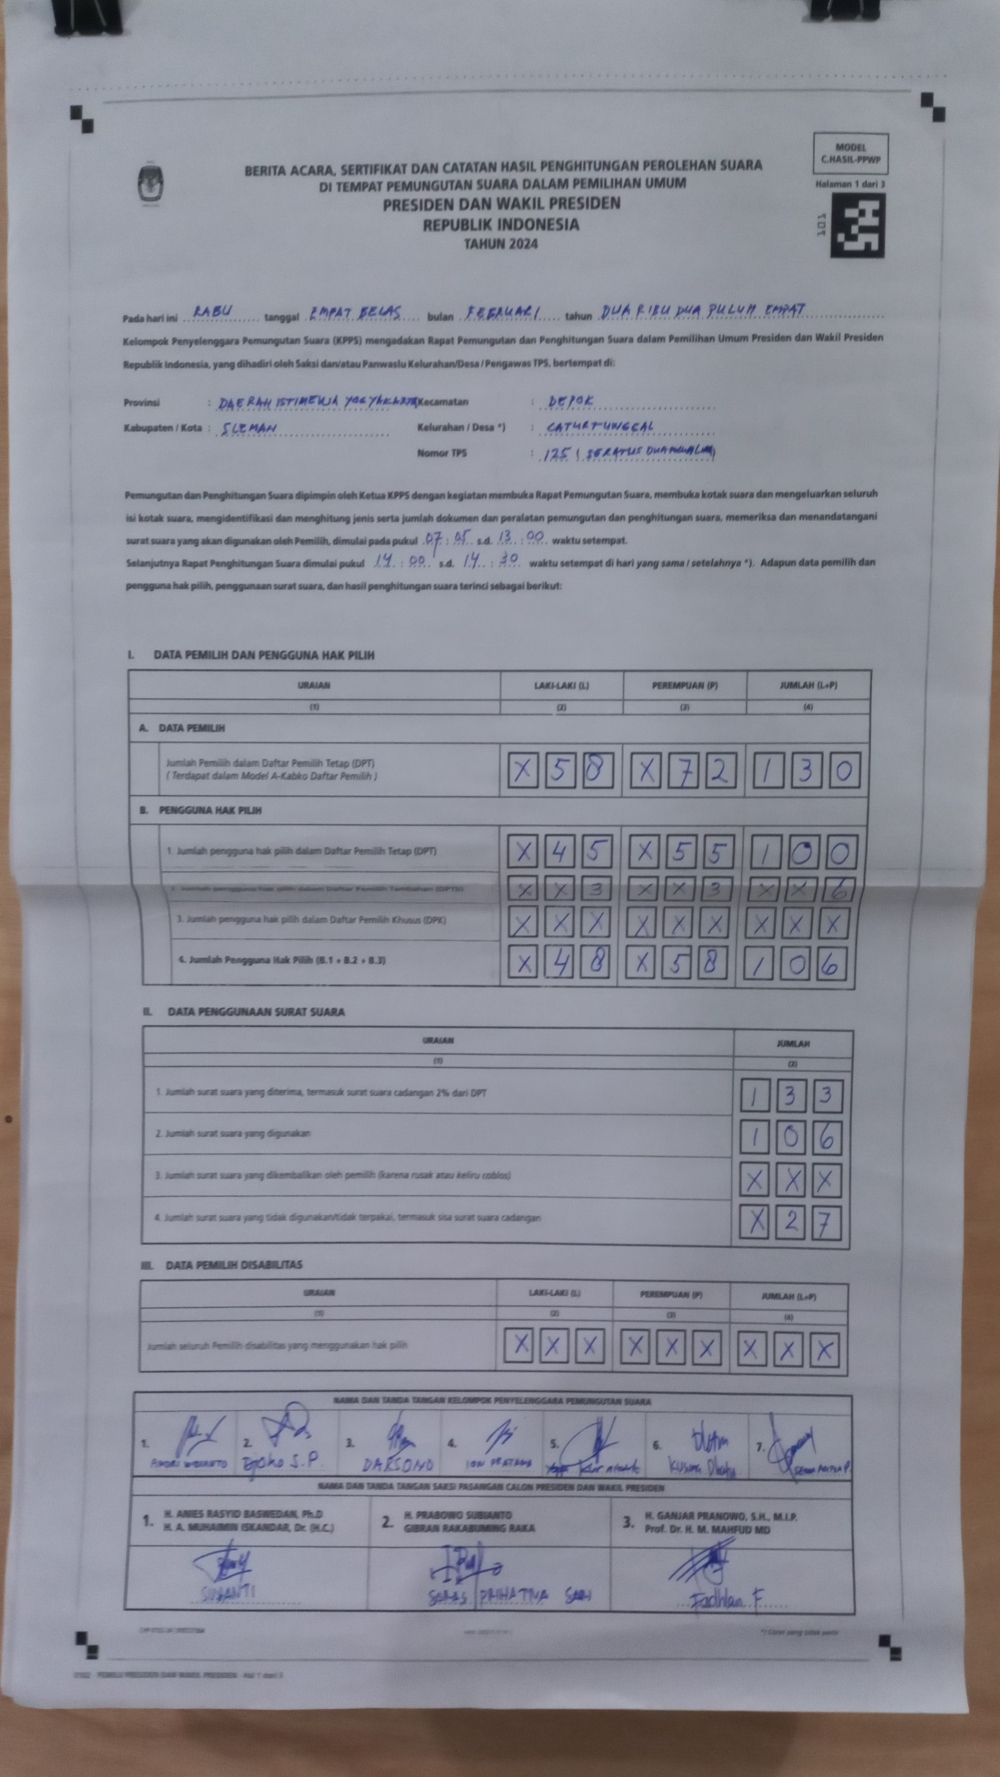 MODEL
C.HASIL-PPWP
Halaman 1 dari 3
101
BERITA ACARA, SERTIFIKAT DAN CATATAN HASIL PENGHITUNGAN PEROLEHAN SUARA
DI TEMPAT PEMUNGUTAN SUARA DALAM PEMILIHAN UMUM
PRESIDEN DAN WAKIL PRESIDEN
REPUBLIK INDONESIA
TAHUN 2024
Pada hari ini RABU tanggal EMPAT BELAS bulan FEBRUARI tahun DUA RIBU DUA PULUH EMPAT
Kelompok Penyelenggara Pemungutan Suara (KPPS) mengadakan Rapat Pemungutan dan Penghitungan Suara dalam Pemilihan Umum Presiden dan Wakil Presiden
Republik Indonesia, yang dihadiri oleh Saksi dan/atau Panwaslu Kelurahan/Desa / Pengawas TPS, bertempat di:
Provinsi : DAERAH ISTIMEWA Kecamatan : DEPOK
Kabupaten / Kota : SLEMAN Kelurahan / Desa *) : CATURTUNGGAL
Nomor TPS : 125 ( SERATUS
Pemungutan dan Penghitungan Suara dipimpin oleh Ketua KPPS dengan kegiatan membuka Rapat Pemungutan Suara, membuka kotak suara dan mengeluarkan seluruh
isi kotak suara, mengidentifikasi dan menghitung jenis serta jumlah dokumen dan peralatan pemungutan dan penghitungan suara, memeriksa dan menandatangani
surat suara yang akan digunakan oleh Pemilih, dimulai pada pukul 07 : 05 s.d. 13 : 00 waktu setempat.
Selanjutnya Rapat Penghitungan Suara dimulai pukul 14 : 00 s.d. 14 : 30 waktu setempat di hari yang sama / setelahnya *). Adapun data pemilih dan
pengguna hak pilih, penggunaan surat suara, dan hasil penghitungan suara terinci sebagai berikut:
I. DATA PEMILIH DAN PENGGUNA HAK PILIH
URAIAN LAKI-LAKI (L) PEREMPUAN (P) JUMLAH (L+P)
(1) (2) (3) (4)
A. DATA PEMILIH
Jumlah Pemilih dalam Daftar Pemilih Tetap (DPT)
( Terdapat dalam Model A-Kabko Daftar Pemilih )
X 5 8 X 7 2 1 3 0
B. PENGGUNA HAK PILIH
1. Jumlah pengguna hak pilih dalam Daftar Pemilih Tetap (DPT) X 4 5 X 5 5 1 0 0
2. Jumlah pengguna hak pilih dalam Daftar Pemilih Tambahan (DPTb) X X 3 X X 3 X X 6
3. Jumlah pengguna hak pilih dalam Daftar Pemilih Khusus (DPK) X X X X X X X X X
4. Jumlah Pengguna Hak Pilih (B.1 + B.2 + B.3) X 4 8 X 5 8 1 0 6
II. DATA PENGGUNAAN SURAT SUARA
URAIAN JUMLAH
(1) (2)
1. Jumlah surat suara yang diterima, termasuk surat suara cadangan 2% dari DPT 1 3 3
2. Jumlah surat suara yang digunakan 1 0 6
3. Jumlah surat suara yang dikembalikan oleh pemilih (karena rusak atau keliru coblos) X X X
4. Jumlah surat suara yang tidak digunakan/tidak terpakai, termasuk sisa surat suara cadangan X 2 7
III. DATA PEMILIH DISABILITAS
URAIAN LAKI-LAKI (L) PEREMPUAN (P) JUMLAH (L+P)
(1) (2) (3) (4)
Jumlah seluruh Pemilih disabilitas yang menggunakan hak pilih X X X X X X X X X
NAMA DAN TANDA TANGAN KELOMPOK PENYELENGGARA PEMUNGUTAN SUARA
1. 2. 3. 4. 5. 6. 7.
Djoko S.P. DARSONO
NAMA DAN TANDA TANGAN SAKSI PASANGAN CALON PRESIDEN DAN WAKIL PRESIDEN
1. H. ANIES RASYID BASWEDAN, Ph.D
H. A. MUHAIMIN ISKANDAR, Dr. (H.C.)
2. H. PRABOWO SUBIANTO
GIBRAN RAKABUMING RAKA
3. H. GANJAR PRANOWO, S.H., M.I.P.
Prof. Dr. H. M. MAHFUD MD
SARAS PRIHATINA SARI Fadhlan F
*) Coret yang tidak perlu